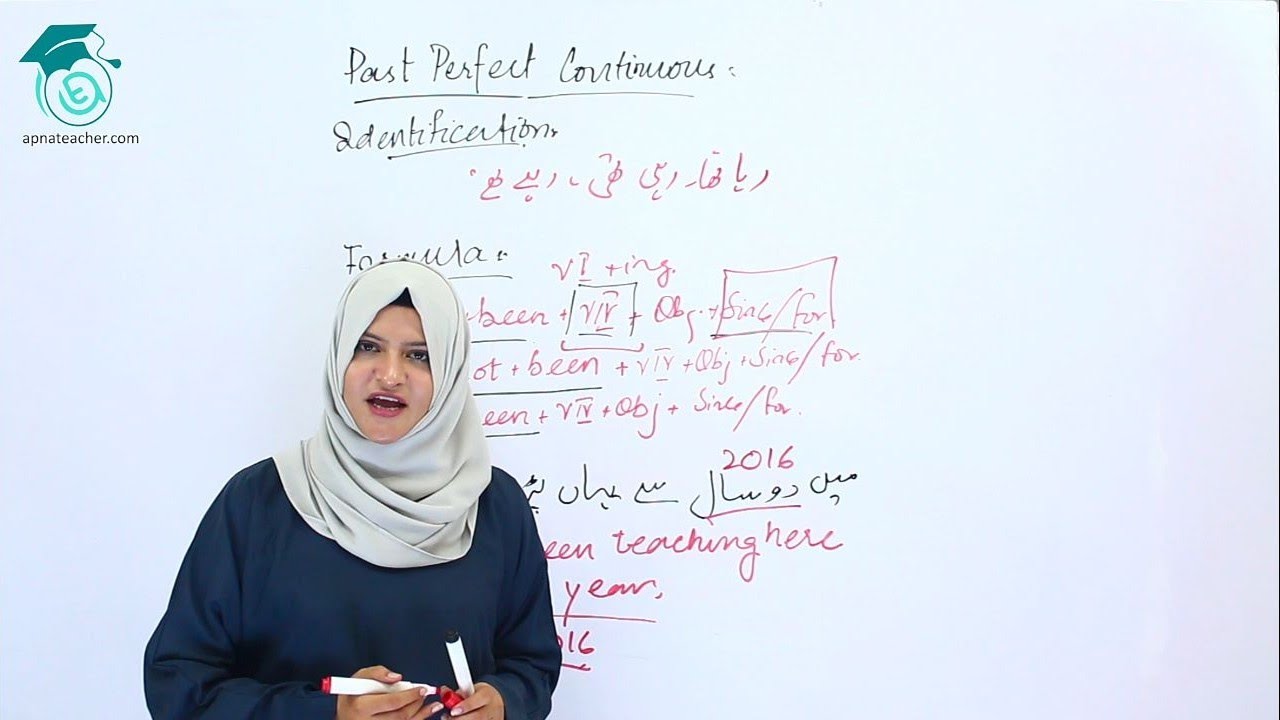 apnateacher.com
Past Perfect Continuous.
Identification.
رہا تھا۔ رہی تھی ، رہے تھے۔
Formula.
VI + ing.
been + VIV + Obj + Since/for
ot + been + VIV + Obj + Since/for.
een + VIV + Obj + Since/for.
2016
میں دو سال سے یہاں
een teaching here
years.
016